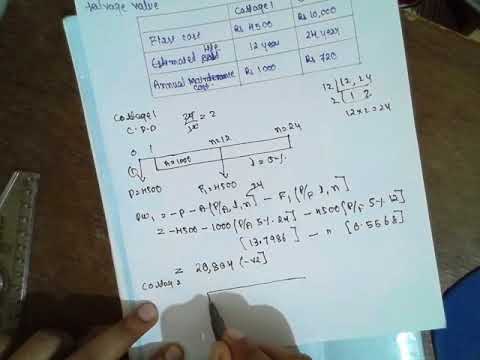 Salvage value
Cottage 1
First cost Rs 4500 Rs 10,000
Estimated life 12 year 24 years
Annual maintenance cost Rs 1000 Rs 720
Cottage 1
C.F.D 24/12 = 2
12 | 12, 24
2 | 1 2
12 x 2 = 24
0 1 n=12 n=24
A=1000 i=5%
P=4500 F₁=4500
PW₁ = -P - A (P/A, i, n) - F₁ (P/F, i, n)
= -4500 - 1000 (P/A 5% 24) - 4500 [P/F 5% 12]
[13.7986] - [0.5568]
= 20,804 (-ve)
Cottage 2